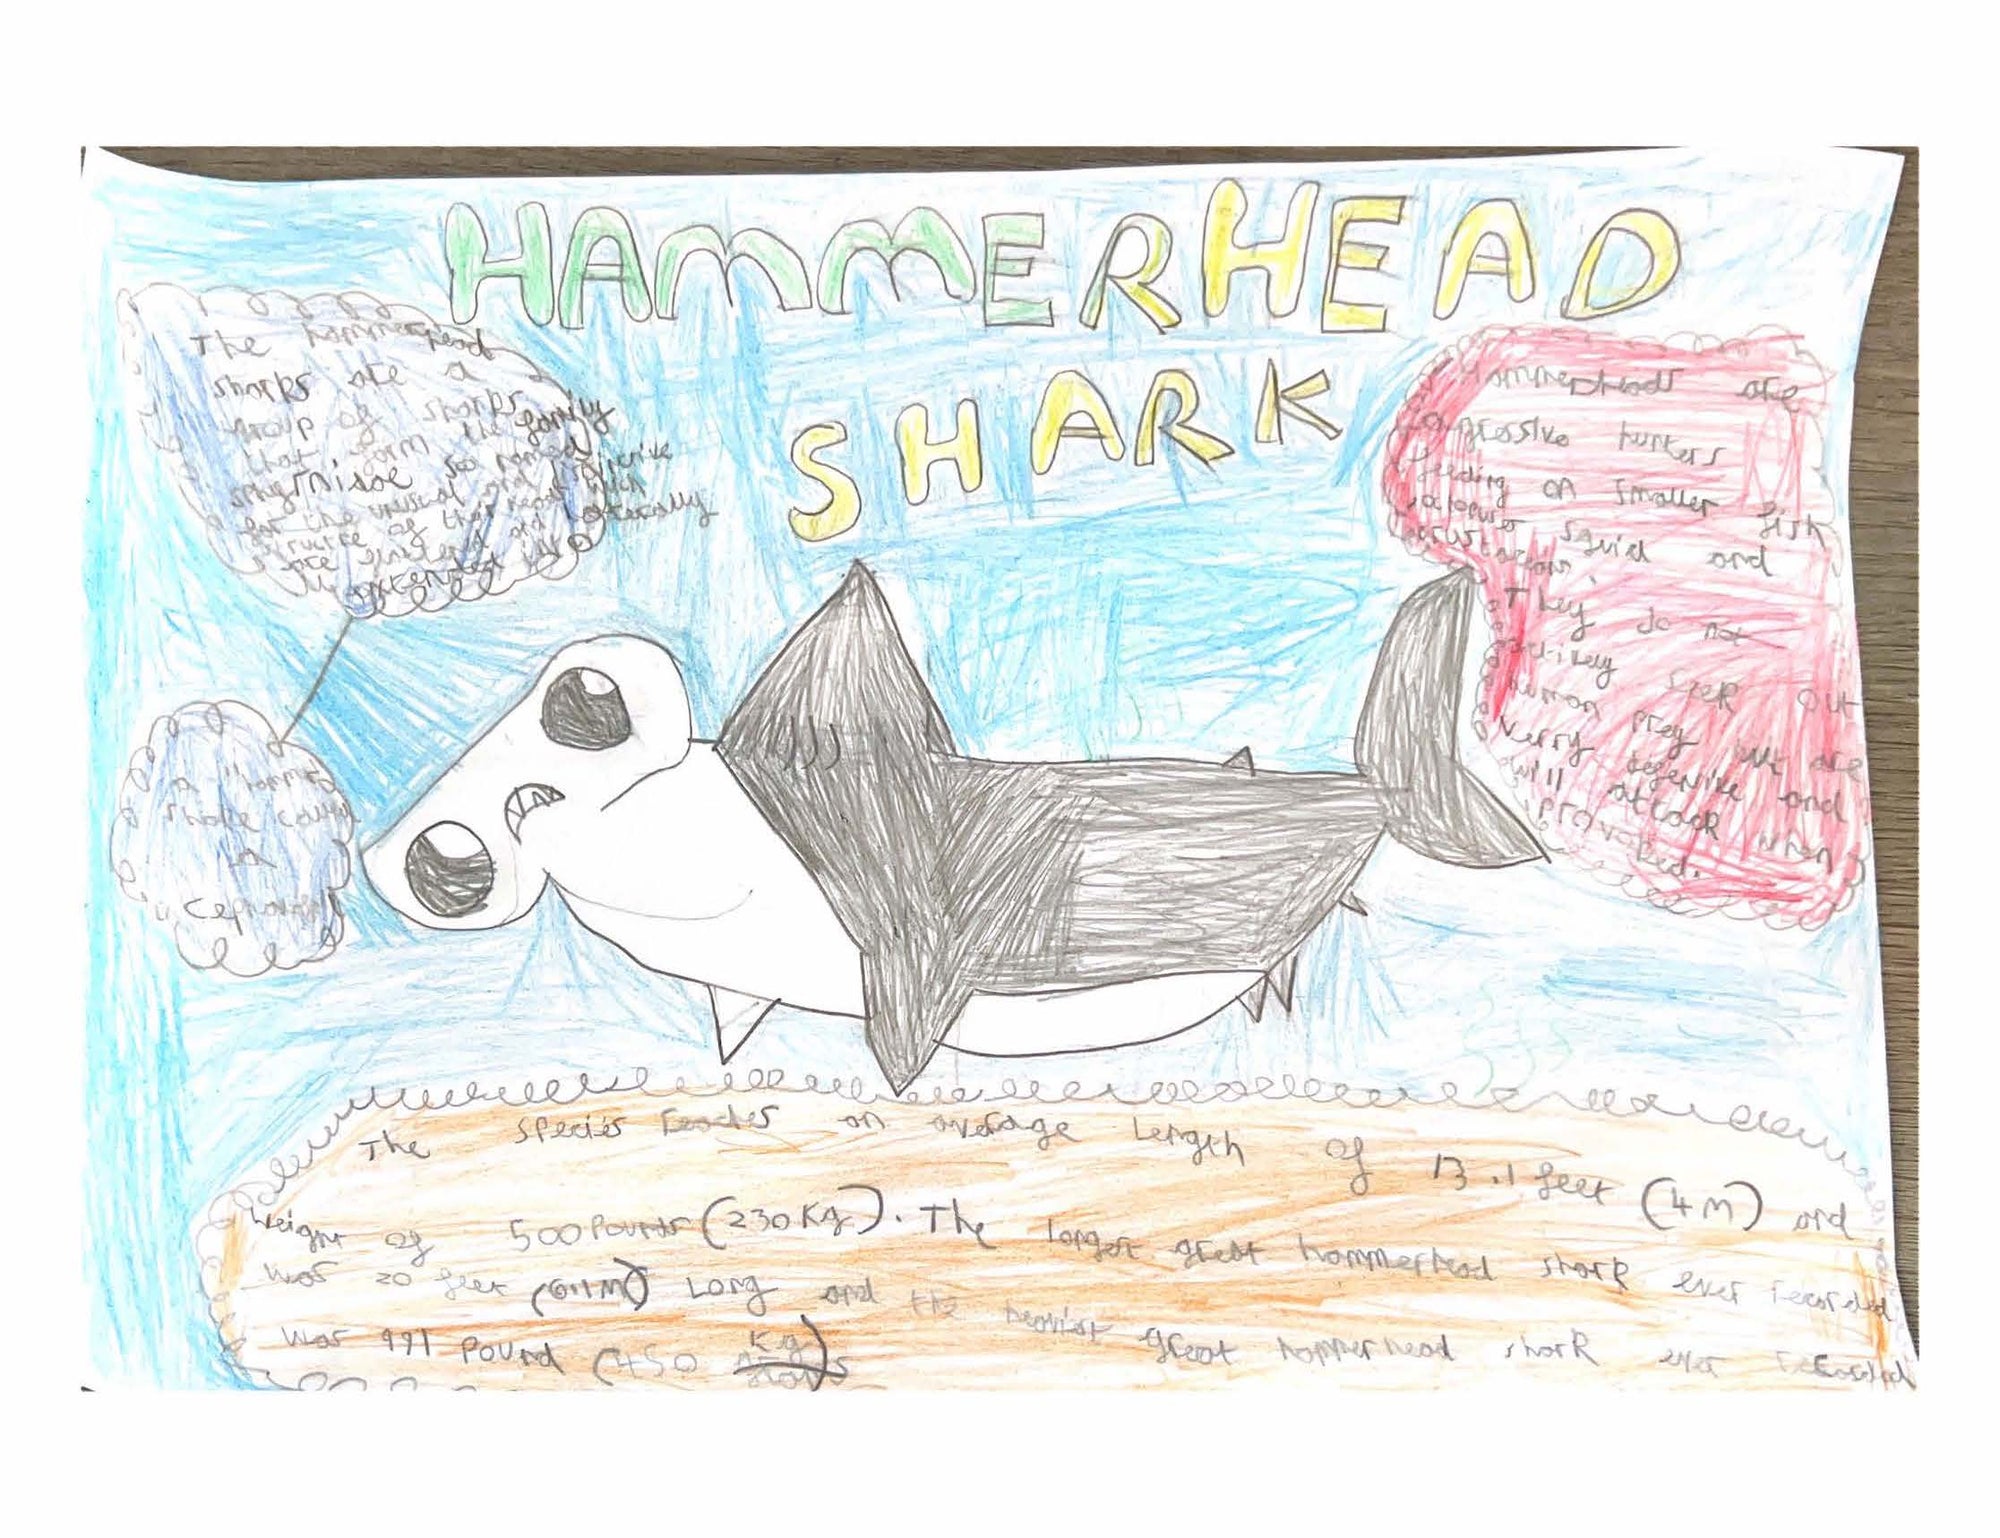 HAMMERHEAD
SHARK
The hammerhead
sharks are a
group of sharks
that form the family
so named
for the unusual and distinctive
structure of their heads which
are and laterally
extended
a "hammer"
shape called
a
Hammerheads are
aggressive hunters
feeding on smaller fish
octopuses squid and
They do not
activley seek out
human prey but are
verry defenive and
will attack when
provoked.
The species reaches an average length of 13.1 feet (4M) and
weight of 500 Pounds (230Kg). The longest great hammerhead shark ever recorded
was 20 feet (6.1M) Long and the heaviest great hammerhead shark ever recorded
was 991 Pound (450 Kg)s